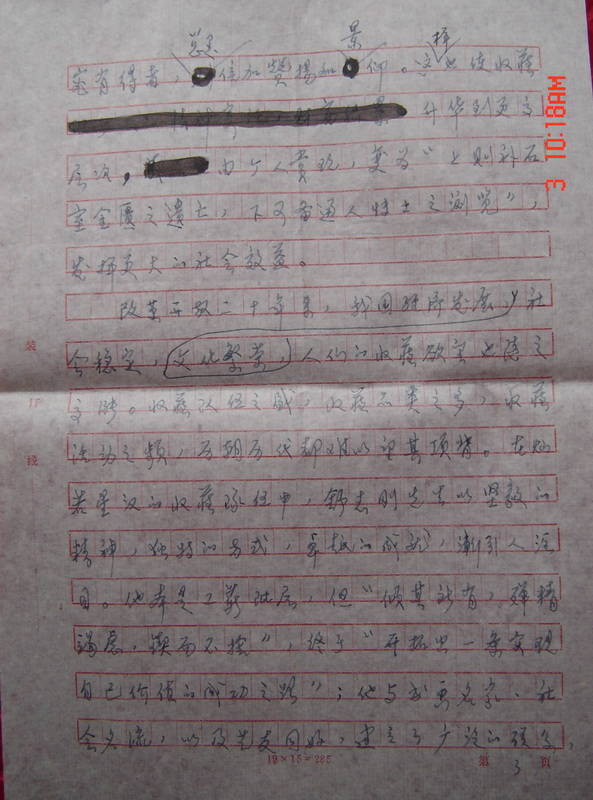 景
室有得者，信加赞扬和仰。这也使收藏
升华到更高
层次，由个人赏玩，更为“上则补石
室金匮之遗亡，下可备通人特士之浏览”，
发挥更大的社会效益。
改革开放二十年来，我国经济发展，社
会稳定，文化繁荣，人们的收藏欲望也随之
。收藏队伍之盛，收藏品类之多，收藏
活动之频，历朝历代都难以望其项背。在灿
若星汉的收藏队伍中，先生以坚毅的
精神，独特的方式，卓越的成就，渐引人注
目。他本是工薪阶层，但“倾其所有，殚精
竭虑，锲而不捨”，终于“开拓出一条实现
自己价值的成功之路”；他与书画名家、社
会名流，以及先友同好，建立了广泛的联系，
装
订
线
19×15=285
第 3 页
3 10:18AM